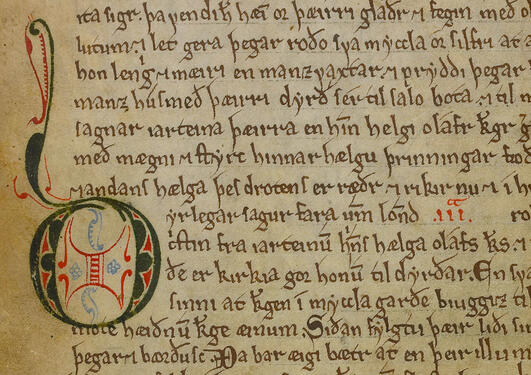 ita sigr. þa vendiſk hæi or þæirri glaðr ⁊ fegin með o
lutum. ⁊ let gera þegar roðo sva myccla or silfri at a
hon lenġr ⁊ mæiri en manz vaxtar. ⁊ pryddi þegar
manz hus með þæirri dyrd ser til salo bota. ⁊ til
sagnar iarteina þæirra en hīn helgi olafr k̅gr
með mægni ⁊ styrc hinnar hælgu þrinningar
⁊ andans hælga þes drotens er ræðr ⁊ rikir nu ⁊ i
Dyrlegar sagur fara um̅ lond .iii.
fra iarteinū h̅ns hælga olafs k̅s.
de er kirkia gor honū til dyrdar. En
sinni at k̅gen i myccla garde biuggiz til
mote hæidnū k̅ge æinum. Siðan fylgtu þæir liði
þegar ⁊ bærdusc. Þa var æigi bætr at en þeir